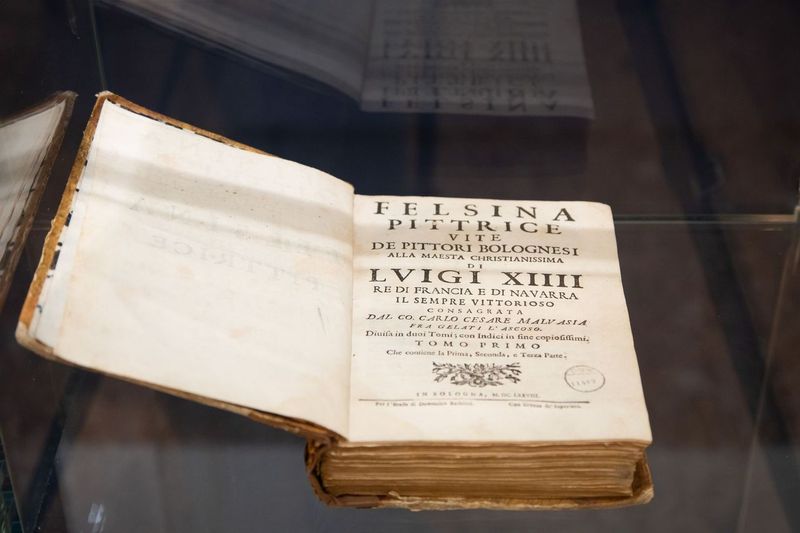 FELSINA
PITTRICE
VITE
DE PITTORI BOLOGNESI
ALLA MAESTA CHRISTIANISSIMA
DI
LVIGI XIIII
RE DI FRANCIA E DI NAVARRA
IL SEMPRE VITTORIOSO
CONSAGRATA
DAL CO. CARLO CESARE MALVASIA
FRA GELATI L'ASCOSO.
Diuiſa in duoi Tomi; con Indici in fine copioſiſſimi.
TOMO PRIMO
Che contiene la Prima, Seconda, e Terza Parte.
IN BOLOGNA, M. DC. LXXVIII.
Per l'Erede di Domenico Barbieri. Con licenza de' Superiori.